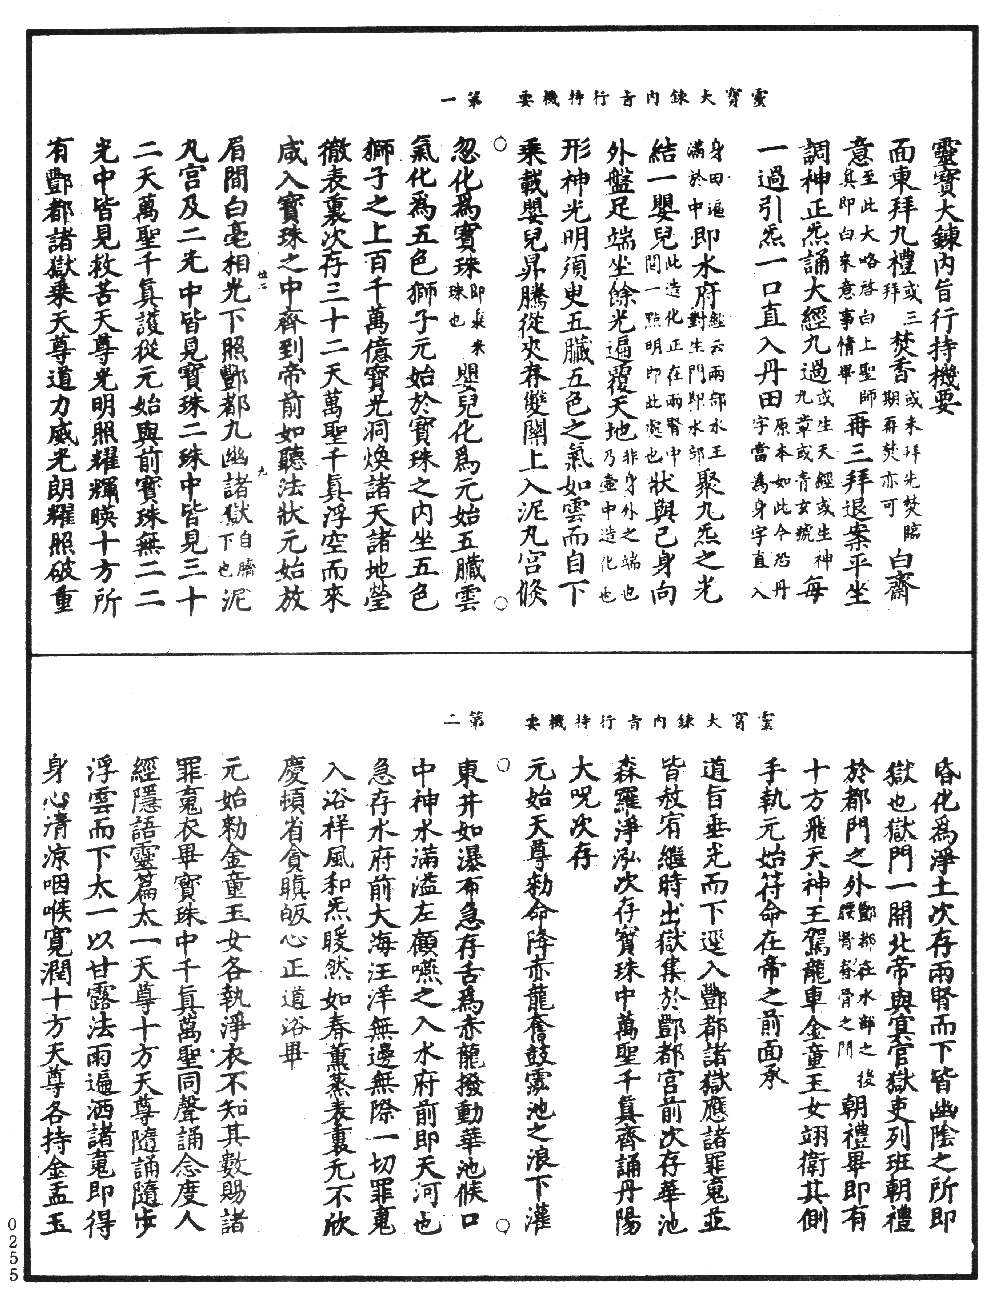 靈寶大鍊內旨行持機要 第一
靈寶大鍊內旨行持機要
面東拜九禮或三拜焚香或未拜先焚臨期再焚亦可白齋
意至此大略啓白上聖師真即白來意事情畢再三拜退案平坐
調神正炁誦大經九過或生天經或生神九章或青玄號每
一過引炁一口直入丹田原本如此今恐丹字當為身字直入
身田遍滿於中即水府經云兩部水王對生門即水部聚九炁之光
結一嬰兒此造化正在兩腎中間一點明即此處也狀與己身向
外盤足端坐餘光遍覆天地非身外之端也乃壷中造化也
形神光明須臾五臟五色之氣如雲而自下
乘載嬰兒昇騰從夾脊雙關上入泥丸宮倏
忽化為寶珠即泉來珠也嬰兒化為元始五臟雲
氣化為五色獅子元始於寶珠之內坐五色
獅子之上百千萬億寶光洞煥諸天諸地瑩
徹表裏次存三十二天萬聖千真浮空而來
咸入寶珠之中齊到帝前如聽法狀元始放
眉間白毫相光下照酆都九幽諸獄自臍下也泥
丸宮及二光中皆見寶珠二珠中皆見三十
二天萬聖千真護從元始與前寶珠無二二
光中皆見救苦天尊光明照耀輝暎十方所
有酆都諸獄乘天尊道力威光朗耀照破重
靈寶大鍊內旨行持機要 第二
昏化為淨土次存兩腎而下皆幽陰之所即
獄也獄門一開北帝與冥官獄吏列班朝禮
於都門之外酆都在水部之後腰腎脊骨之間朝禮畢即有
十方飛天神王駕龍車金童玉女翊衛其側
手執元始符命在帝之前面承
道旨垂光而下逕入酆都諸獄應諸罪䰟並
皆赦宥繼時出獄集於酆都宮前次存華池
森羅淨泓次存寶珠中萬聖千真齊誦丹陽
大呪次存
元始天尊勑命降赤龍奮鼓靈池之浪下灌
東井如瀑布急存舌為赤龍撥動華池候口
中神水滿溢左顧嚥之入水府前即天河也
急存水府前大海汪洋無邊無際一切罪䰟
入浴祥風和炁暖然如春薰蒸表裏无不欣
慶頓省貪瞋皈心正道浴畢
元始勑金童玉女各執淨衣不知其數賜諸
罪䰟衣畢寶珠中千真萬聖同聲誦念度人
經隱語靈篇太一天尊十方天尊隨誦隨步
浮雲而下太一以甘露法雨遍洒諸䰟即得
身心清涼咽喉寬潤十方天尊各持金盂玉
0255